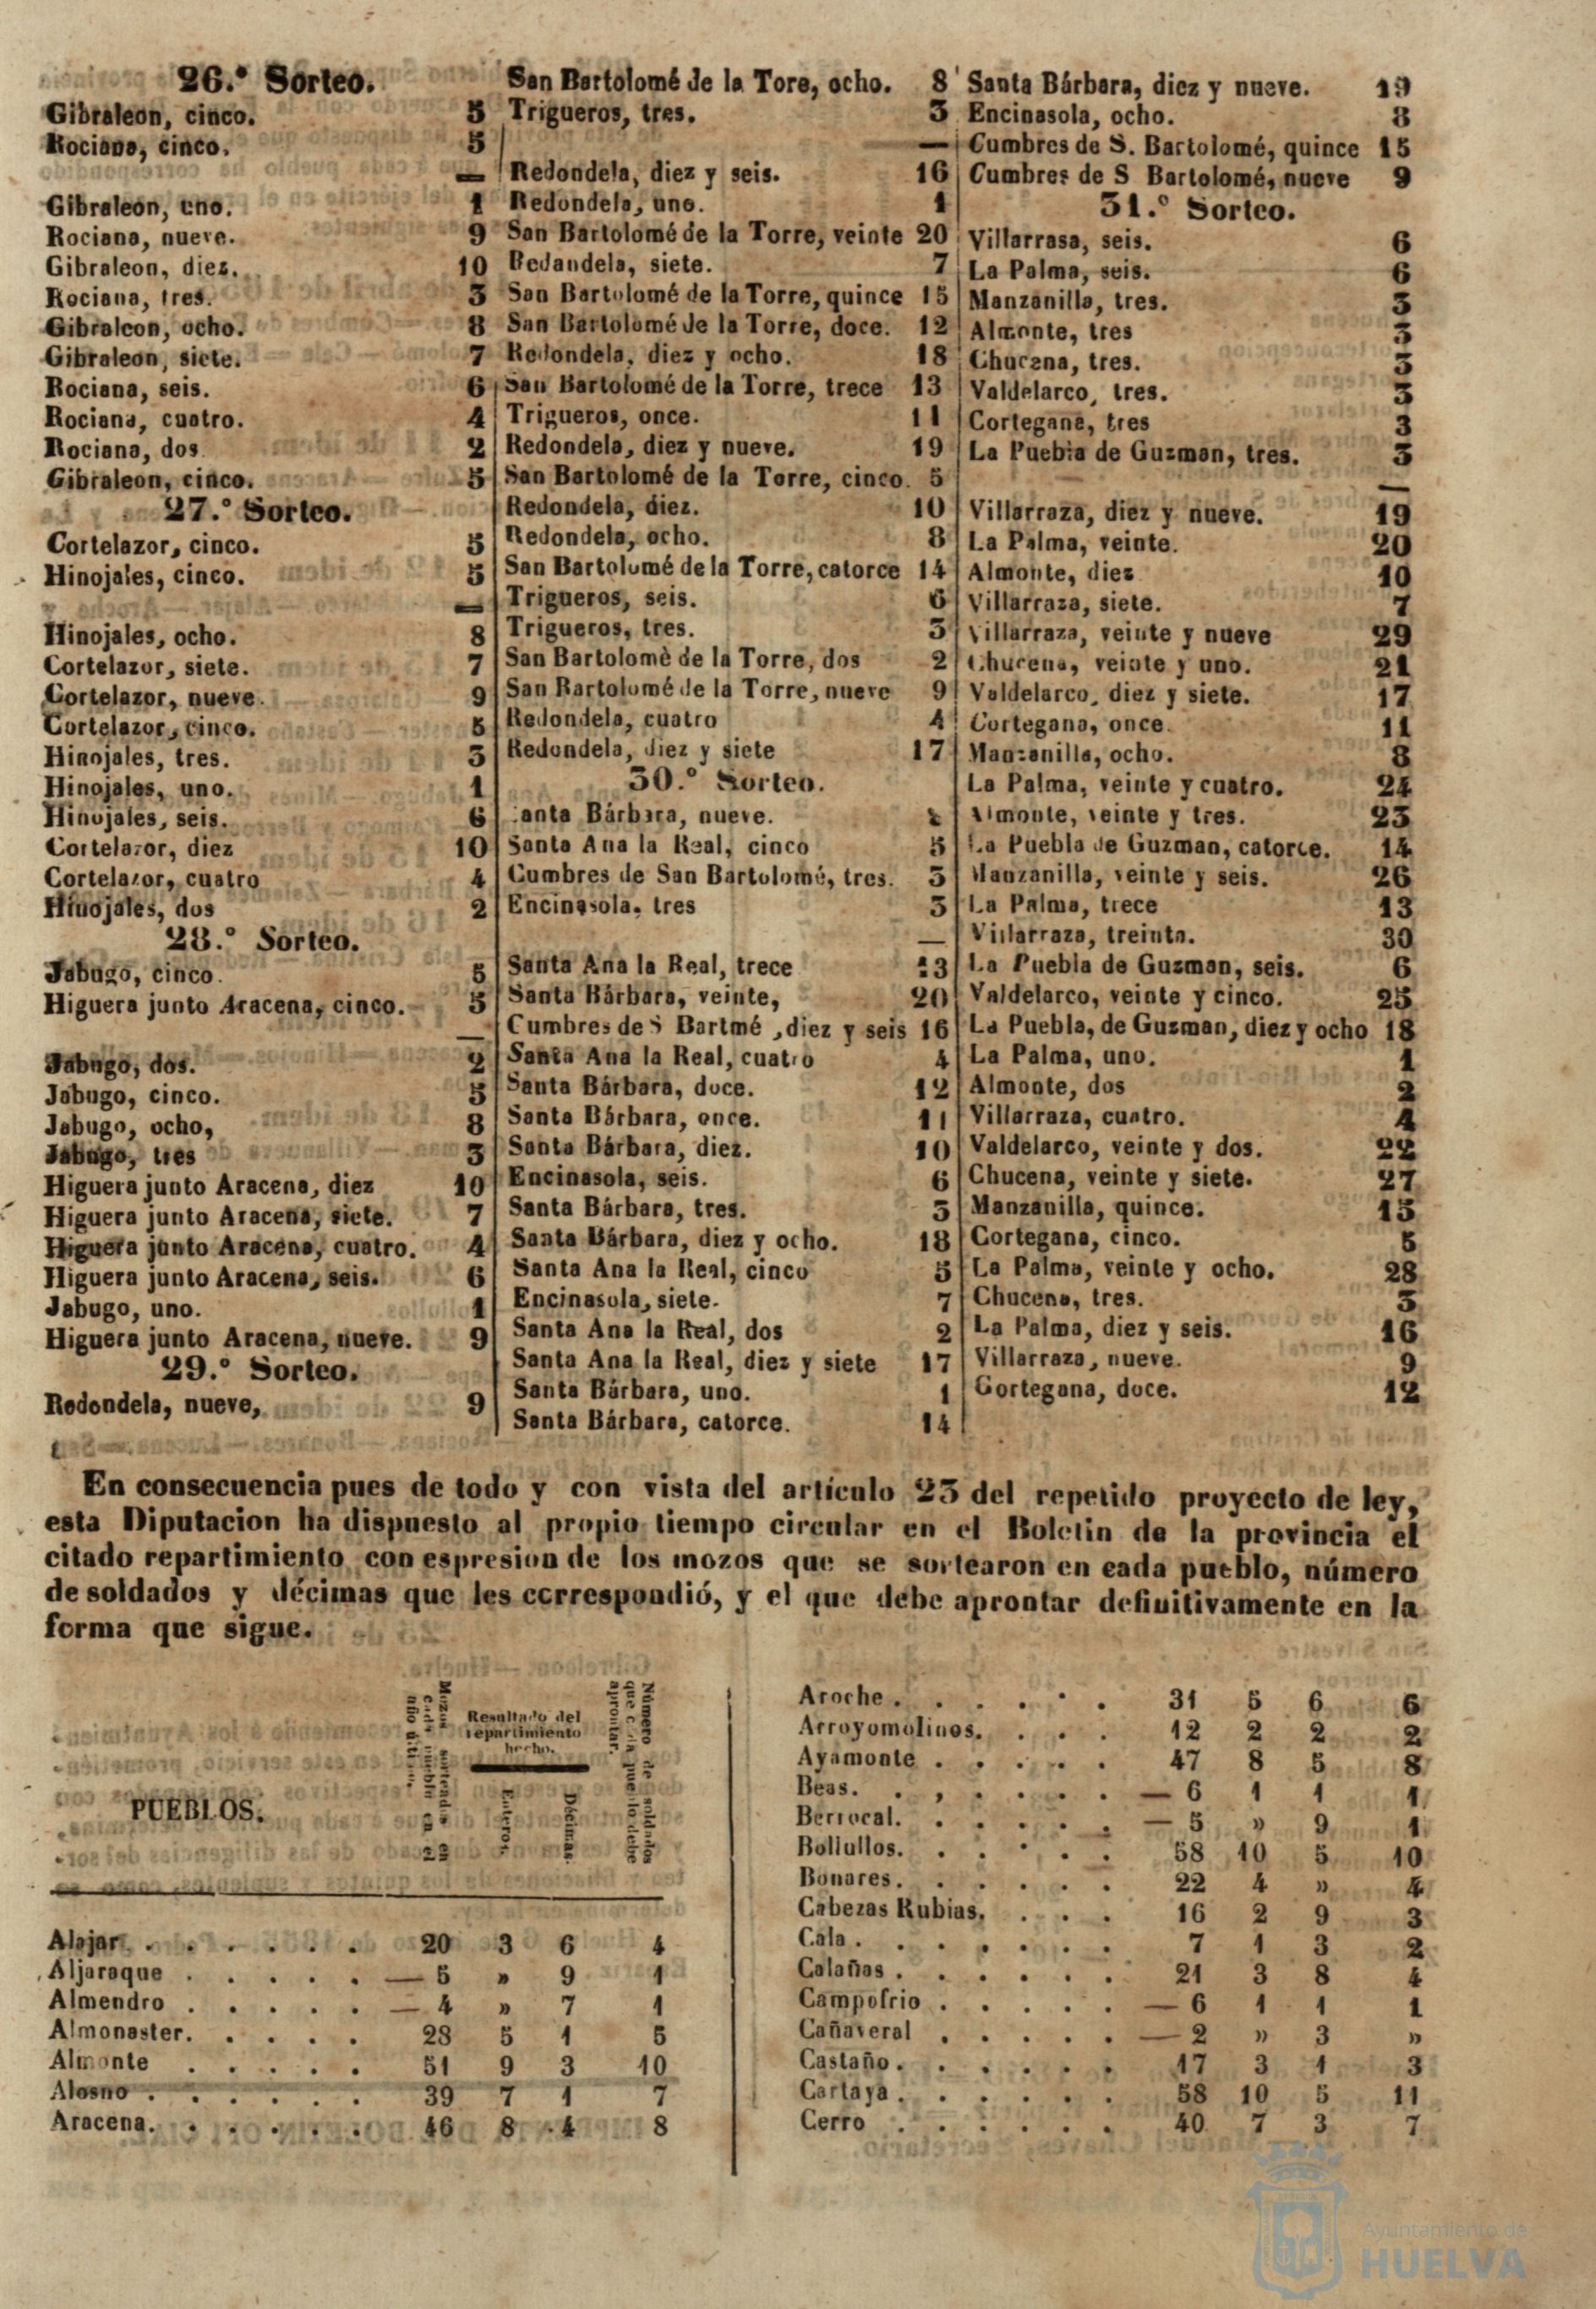 26.º Sorteo.
Gibraleon, cinco. 5
Rociana, cinco. 5
—
Gibraleon, uno. 1
Rociana, nueve. 9
Gibraleon, diez. 10
Rociana, tres. 3
Gibraleon, ocho. 8
Gibraleon, siete. 7
Rociana, seis. 6
Rociana, cuatro. 4
Rociana, dos 2
Gibraleon, cinco. 5
27.º Sorteo.
Cortelazor, cinco. 5
Hinojales, cinco. 5
—
Hinojales, ocho. 8
Cortelazor, siete. 7
Cortelazor, nueve. 9
Cortelazor, cinco. 5
Hinojales, tres. 3
Hinojales, uno. 1
Hinojales, seis. 6
Cortelazor, diez 10
Cortelazor, cuatro 4
Hinojales, dos 2
28.º Sorteo.
Jabugo, cinco. 5
Higuera junto Aracena, cinco. 5
—
Jabugo, dos. 2
Jabugo, cinco. 5
Jabugo, ocho, 8
Jabugo, tres 3
Higuera junto Aracena, diez 10
Higuera junto Aracena, siete. 7
Higuera junto Aracena, cuatro. 4
Higuera junto Aracena, seis. 6
Jabugo, uno. 1
Higuera junto Aracena, nueve. 9
29.º Sorteo.
Redondela, nueve, 9
San Bartolomé de la Tore, ocho. 8
Trigueros, tres. 3
—
Redondela, diez y seis. 16
Redondela, uno. 1
San Bartolomé de la Torre, veinte 20
Redandela, siete. 7
San Bartolomé de la Torre, quince 15
San Bartolomé de la Torre, doce. 12
Redondela, diez y ocho. 18
San Bartolomé de la Torre, trece 13
Trigueros, once. 11
Redondela, diez y nueve. 19
San Bartolomé de la Torre, cinco. 5
Redondela, diez. 10
Redondela, ocho. 8
San Bartolomé de la Torre, catorce 14
Trigueros, seis. 6
Trigueros, tres. 3
San Bartolomè de la Torre, dos 2
San Bartolomé de la Torre, nueve 9
Redondela, cuatro 4
Redondela, diez y siete 17
30.º Sorteo.
Santa Bárbara, nueve.
Santa Ana la Real, cinco 5
Cumbres de San Bartolomé, tres. 3
Encinasola, tres 3
—
Santa Ana la Real, trece 13
Santa Bárbara, veinte, 20
Cumbres de S Bartmé, diez y seis 16
Santa Ana la Real, cuatro 4
Santa Bárbara, doce. 12
Santa Bárbara, once. 11
Santa Bárbara, diez. 10
Encinasola, seis. 6
Santa Bárbara, tres. 3
Santa Bárbara, diez y ocho. 18
Santa Ana la Real, cinco 5
Encinasola, siete. 7
Santa Ana la Real, dos 2
Santa Ana la Real, diez y siete 17
Santa Bárbara, uno. 1
Santa Bárbara, catorce. 14
Santa Bárbara, diez y nueve. 19
Encinasola, ocho. 8
Cumbres de S. Bartolomé, quince 15
Cumbres de S Bartolomé, nueve 9
31.º Sorteo.
Villarrasa, seis. 6
La Palma, seis. 6
Manzanilla, tres. 3
Almonte, tres 3
Chucena, tres. 3
Valdelarco, tres. 3
Cortegana, tres 3
La Puebla de Guzman, tres. 3
—
Villarraza, diez y nueve. 19
La Palma, veinte. 20
Almonte, diez 10
Villarraza, siete. 7
Villarraza, veinte y nueve 29
Chucena, veinte y uno. 21
Valdelarco, diez y siete. 17
Cortegana, once. 11
Manzanilla, ocho. 8
La Palma, veinte y cuatro. 24
Almonte, veinte y tres. 23
La Puebla de Guzman, catorce. 14
Manzanilla, veinte y seis. 26
La Palma, trece 13
Villarraza, treinta. 30
La Puebla de Guzman, seis. 6
Valdelarco, veinte y cinco. 25
La Puebla, de Guzman, diez y ocho 18
La Palma, uno. 1
Almonte, dos 2
Villarraza, cuatro. 4
Valdelarco, veinte y dos. 22
Chucena, veinte y siete. 27
Manzanilla, quince. 15
Cortegana, cinco. 5
La Palma, veinte y ocho. 28
Chucena, tres. 3
La Palma, diez y seis. 16
Villarraza, nueve. 9
Cortegana, doce. 12
En consecuencia pues de todo y con vista del artículo 23 del repetido proyecto de ley,
esta Diputacion ha dispuesto al propio tiempo circular en el Boletin de la provincia el
citado repartimiento con espresion de los mozos que se sortearon en cada pueblo, número
de soldados y décimas que les correspondió, y el que debe aprontar definitivamente en la
forma que sigue.
PUEBLOS.
Mozos sorteados en
cada pueblo en el
año último.
Resultado del
repartimiento
hecho.
Enteros.
Décimas.
Número de soldados
que cada pueblo debe
aprontar.
Alajar . . . . . . 20 3 6 4
Aljaraque . . . . . — 5 » 9 1
Almendro . . . . . — 4 » 7 1
Almonaster. . . . . 28 5 1 5
Almonte . . . . . 51 9 3 10
Alosno . . . . . . 39 7 1 7
Aracena. . . . . . 46 8 4 8
Aroche . . . . . . 31 5 6 6
Arroyomolinos. . . . 12 2 2 2
Ayamonte . . . . . 47 8 5 8
Beas. . . . . . . — 6 1 1 1
Berrocal. . . . . . — 5 » 9 1
Bollullos. . . . . . 58 10 5 10
Bonares. . . . . . 22 4 » 4
Cabezas Rubias. . . . 16 2 9 3
Cala . . . . . . . 7 1 3 2
Calañas . . . . . . 21 3 8 4
Campofrio . . . . . — 6 1 1 1
Cañaveral . . . . . — 2 » 3 »
Castaño . . . . . . 17 3 1 3
Cartaya . . . . . . 58 10 5 11
Cerro . . . . . . 40 7 3 7
Ayuntamiento de
HUELVA